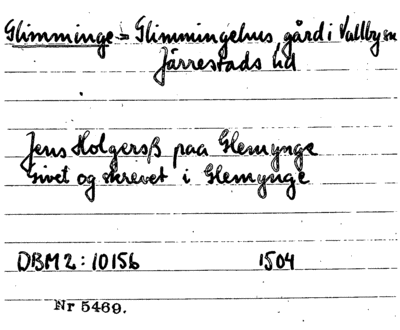 Glimminge = Glimmingehus, gård i Vallby sn
Järrestads hd
Jens Holgersß paa Glemynge
Givet og skrevet i Glemynge
DBM 2:10156 1504
Nr 5469.